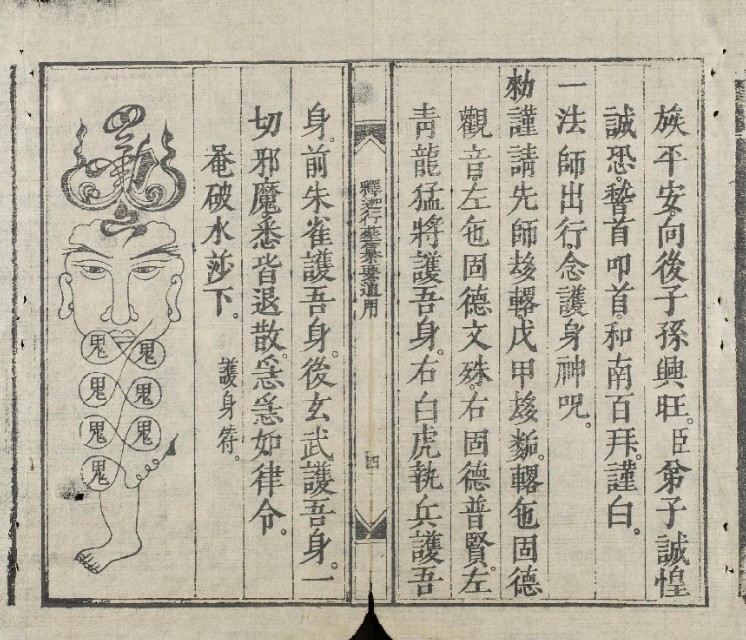 族平安。向後子孫興旺。臣弟子誠惶
誠恐。稽首叩首。和南百拜。謹白。
一法師出行。念護身神呪。
勑謹請先師 戊甲 㐌固德
觀音。左㐌固德文殊。右固德普賢。左
青龍猛將護吾身。右白虎執兵護吾
釋迦行 纂要通用
四
身。前朱雀護吾身。後玄武護吾身。一
切邪魔。悉皆退散。急急如律令。
菴破水莎下。
護身符。
勅
鬼 鬼
鬼 鬼
鬼 鬼
鬼